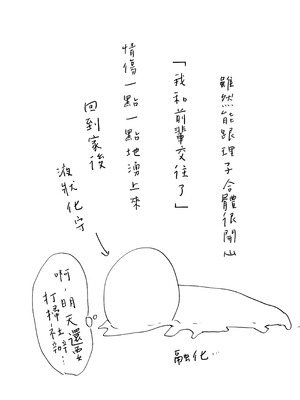 雖然能跟理子合體很開心
「我和前輩交往了」
情傷一點一點地湧上來
回到家後
液狀化守
啊,明天還要
打掃社辦…
融化…